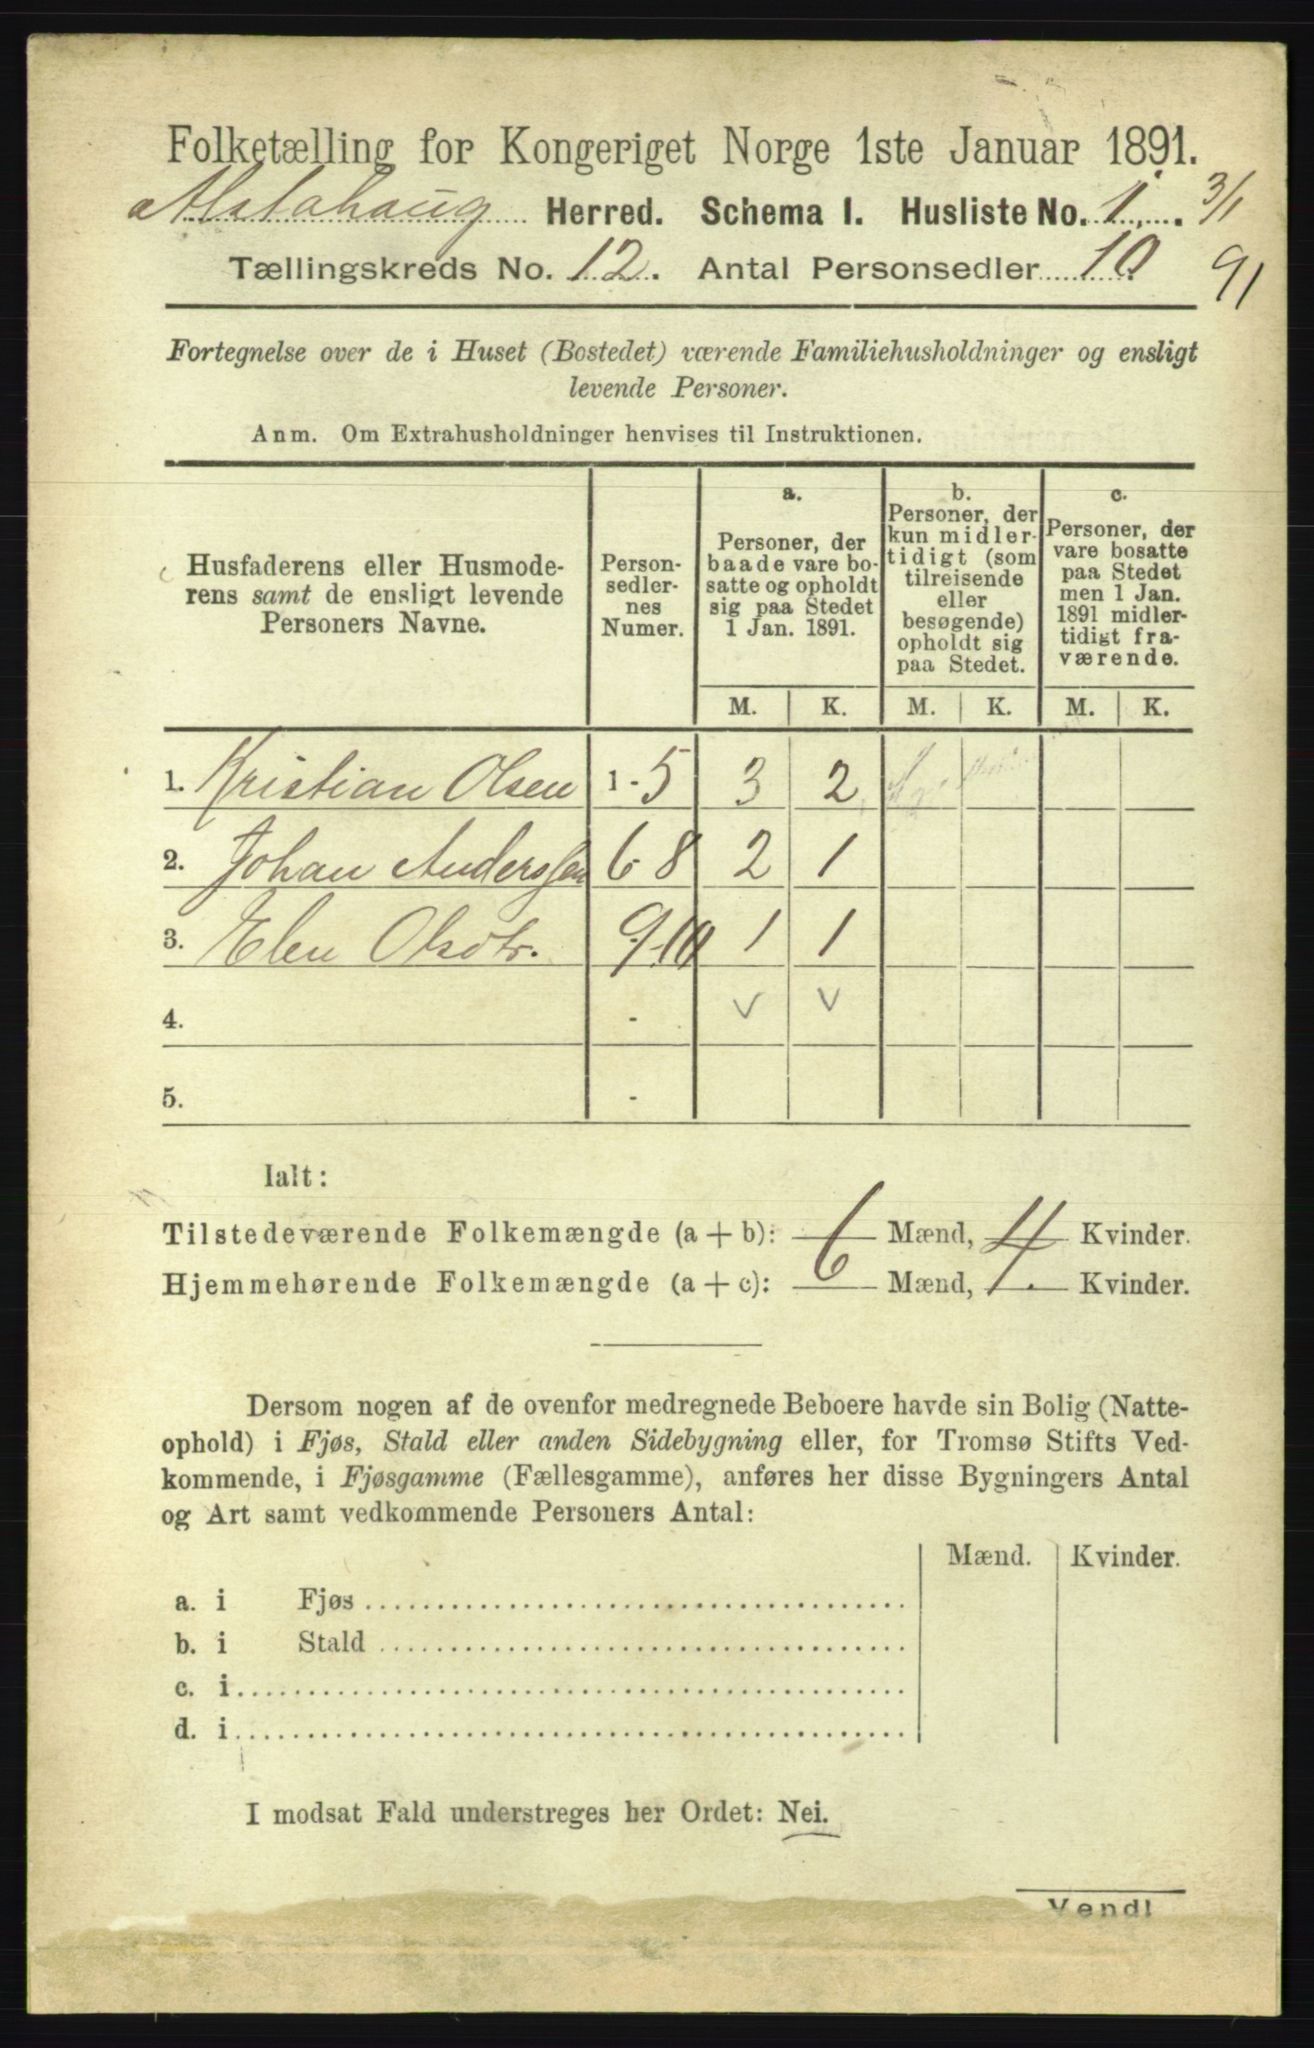 Folketælling for Kongeriget Norge 1ste Januar 1891.
Alstahaug Herred. Schema I. Husliste No. 1. 3/1
Tællingskreds No. 12. Antal Personsedler 10 91
Fortegnelse over de i Huset (Bostedet) værende Familiehusholdninger og ensligt
levende Personer.
Anm. Om Extrahusholdninger henvises til Instruktionen.
Husfaderens eller Husmode-
rens samt de ensligt levende
Personers Navne.
Person-
sedler-
nes
Numer.
a.
Personer, der
baade vare bo-
satte og opholdt
sig paa Stedet
1 Jan. 1891.
b.
Personer, der
kun midler-
tidigt (som
tilreisende
eller
besøgende)
opholdt sig
paa Stedet.
c.
Personer, der
vare bosatte
paa Stedet
men 1 Jan.
1891 midler-
tidigt fra-
værende.
M. K. M. K. M. K.
1. Kristian Olsen 1-5 3 2
2. Johan Anderssen 6-8 2 1
3. Elen Olsdtr. 9-10 1 1
4. - v v
5. -
Ialt:
Tilstedeværende Folkemængde (a + b): 6 Mænd, 4 Kvinder.
Hjemmehørende Folkemængde (a + c): 6 Mænd, 4. Kvinder.
Dersom nogen af de ovenfor medregnede Beboere havde sin Bolig (Natte-
ophold) i Fjøs, Stald eller anden Sidebygning eller, for Tromsø Stifts Ved-
kommende, i Fjøsgamme (Fællesgamme), anføres her disse Bygningers Antal
og Art samt vedkommende Personers Antal:
Mænd. Kvinder.
a. i Fjøs
b. i Stald
c. i
d. i
I modsat Fald understreges her Ordet: Nei.
Vend!